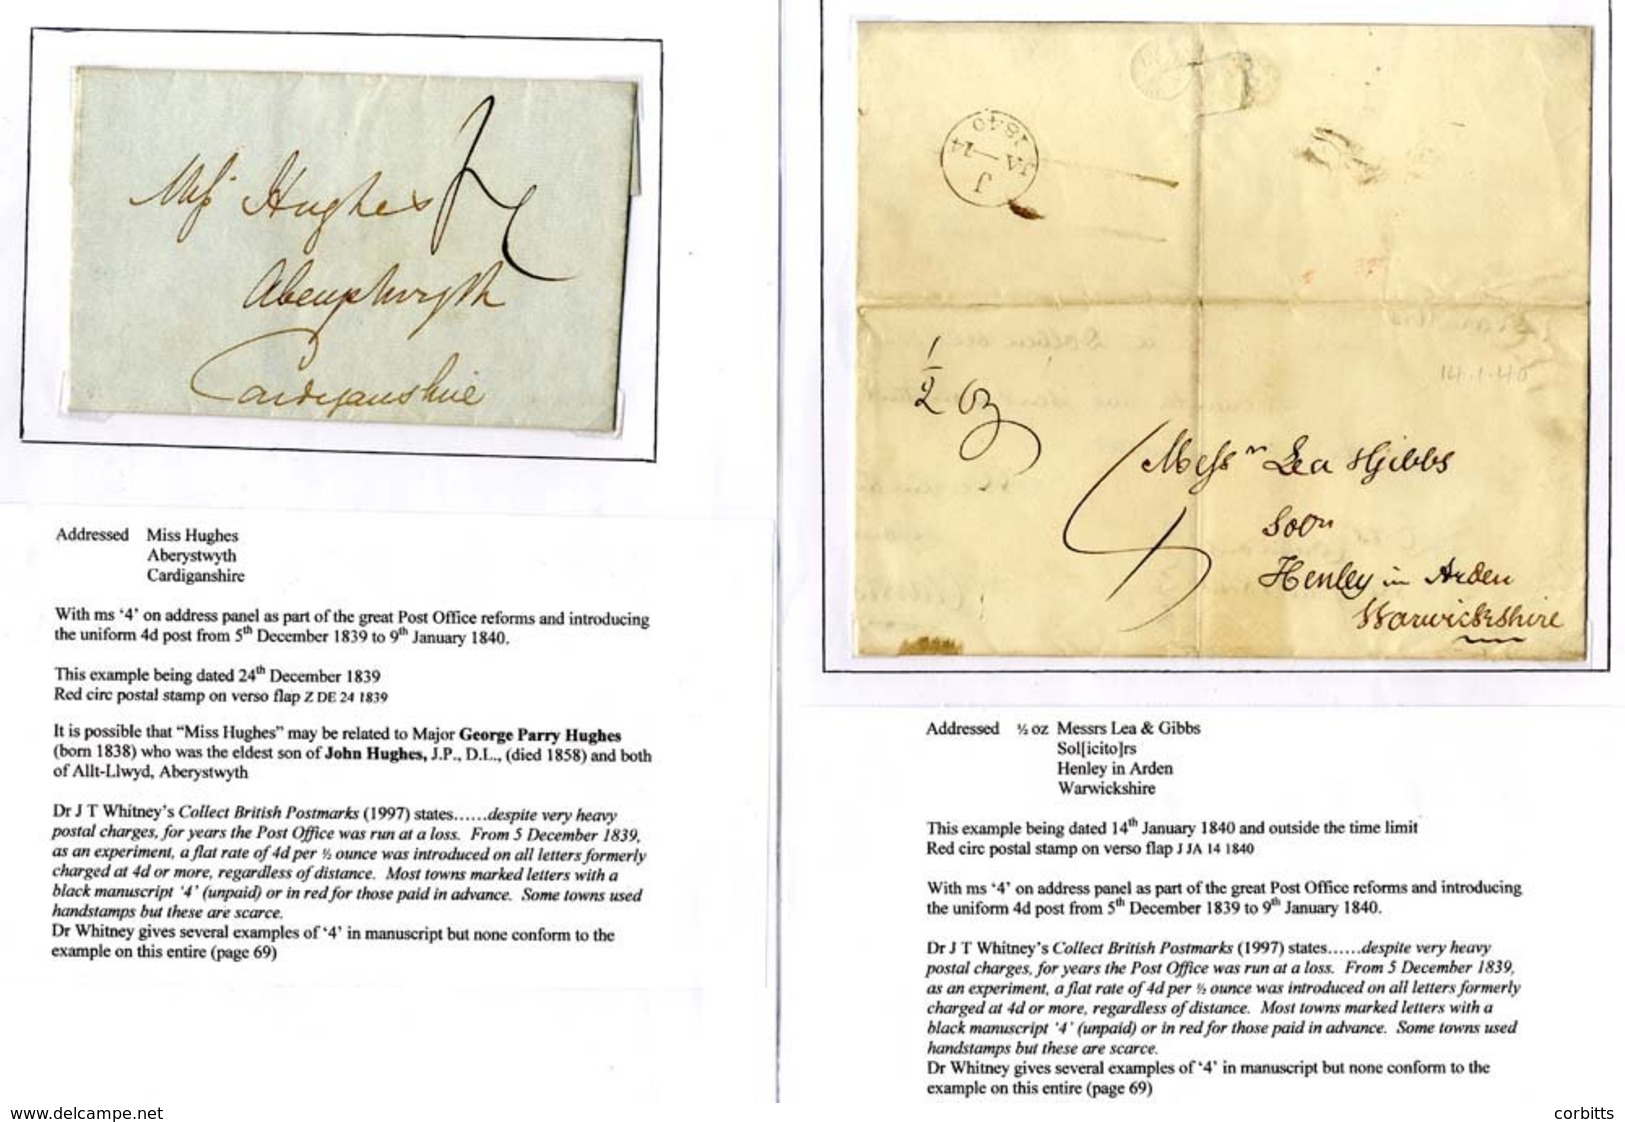 Miſs Hughes
4
Aberystwyth
Cardiganshire
Addressed Miss Hughes
Aberystwyth
Cardiganshire
With ms ‘4’ on address panel as part of the great Post Office reforms and introducing
the uniform 4d post from 5th December 1839 to 9th January 1840.
This example being dated 24th December 1839
Red circ postal stamp on verso flap Z DE 24 1839
It is possible that “Miss Hughes” may be related to Major George Parry Hughes
(born 1838) who was the eldest son of John Hughes, J.P., D.L., (died 1858) and both
of Allt-Llwyd, Aberystwyth
Dr J T Whitney’s Collect British Postmarks (1997) states……despite very heavy
postal charges, for years the Post Office was run at a loss. From 5 December 1839,
as an experiment, a flat rate of 4d per ½ ounce was introduced on all letters formerly
charged at 4d or more, regardless of distance. Most towns marked letters with a
black manuscript ‘4’ (unpaid) or in red for those paid in advance. Some towns used
handstamps but these are scarce.
Dr Whitney gives several examples of ‘4’ in manuscript but none conform to the
example on this entire (page 69)
J
JA 14
1840
14.1.40
½ oz
4
Meſsrs Lea & Gibbs
Solrs
Henley in Arden
Warwickshire
Addressed ½ oz Messrs Lea & Gibbs
Sol[icito]rs
Henley in Arden
Warwickshire
This example being dated 14th January 1840 and outside the time limit
Red circ postal stamp on verso flap J JA 14 1840
With ms ‘4’ on address panel as part of the great Post Office reforms and introducing
the uniform 4d post from 5th December 1839 to 9th January 1840.
Dr J T Whitney’s Collect British Postmarks (1997) states……despite very heavy
postal charges, for years the Post Office was run at a loss. From 5 December 1839,
as an experiment, a flat rate of 4d per ½ ounce was introduced on all letters formerly
charged at 4d or more, regardless of distance. Most towns marked letters with a
black manuscript ‘4’ (unpaid) or in red for those paid in advance. Some towns used
handstamps but these are scarce.
Dr Whitney gives several examples of ‘4’ in manuscript but none conform to the
example on this entire (page 69)
www.delcampe.net
corbitts